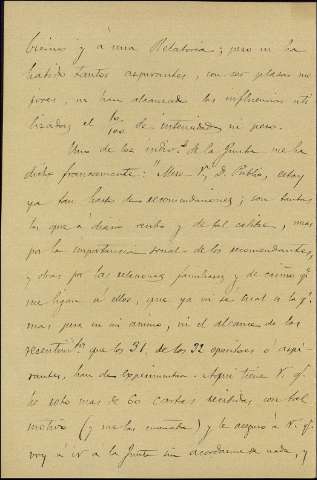 y á una Relatoria; pero ni ha
habido tantos aspirantes, con ser plazas me
jores, ni han alcanzado las influencias uti
lizadas, el de intensidad, ni peso.
Uno de los indiv.s de la Junta me ha
dicho francamente: "Mire V. D. Pablo, estoy
ya tan harto de recomendaciones; son tantas
las que á diario recibo y de tal calibre, mas
por la importancia social de los recomendantes,
y otras por las relaciones familiares y de cariño q.e
me ligan á ellos, que ya ni sé cual es la q.e
mas pesa en mi animo, ni el alcance de los
que los 31, de los 32 opositores ó aspi-
rantes, han de experimentar. Aqui tiene V. q.e
es esto mas de 60 cartas recibidas, con tal
motivo (y me las enseñaba) y le aseguro á V. q.e
voy á ir a la Junta sin acordarme de nada, y